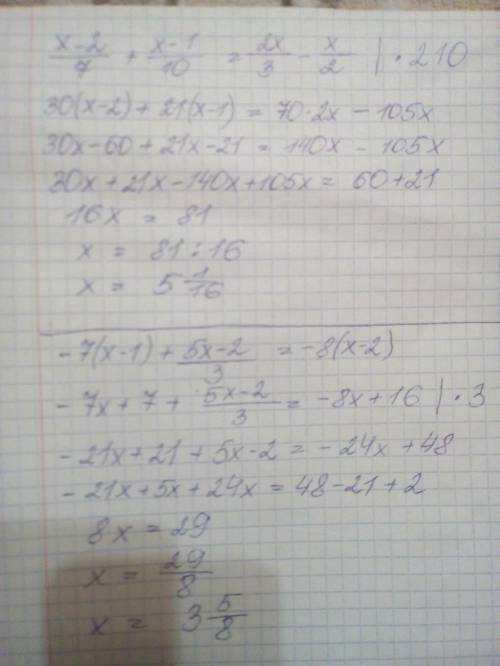 x-2/7 + x-1/10 = 2x/3 - x/2 | · 210
30(x-2) + 21(x-1) = 70·2x - 105x
30x-60 + 21x-21 = 140x - 105x
30x + 21x - 140x + 105x = 60+21
16x = 81
x = 81 : 16
x = 5 1/16
-7(x-1) + 5x-2/3 = -8(x-2)
-7x + 7 + 5x-2/3 = -8x + 16 | · 3
-21x + 21 + 5x - 2 = -24x + 48
-21x + 5x + 24x = 48 - 21 + 2
8x = 29
x = 29/8
x = 3 5/8